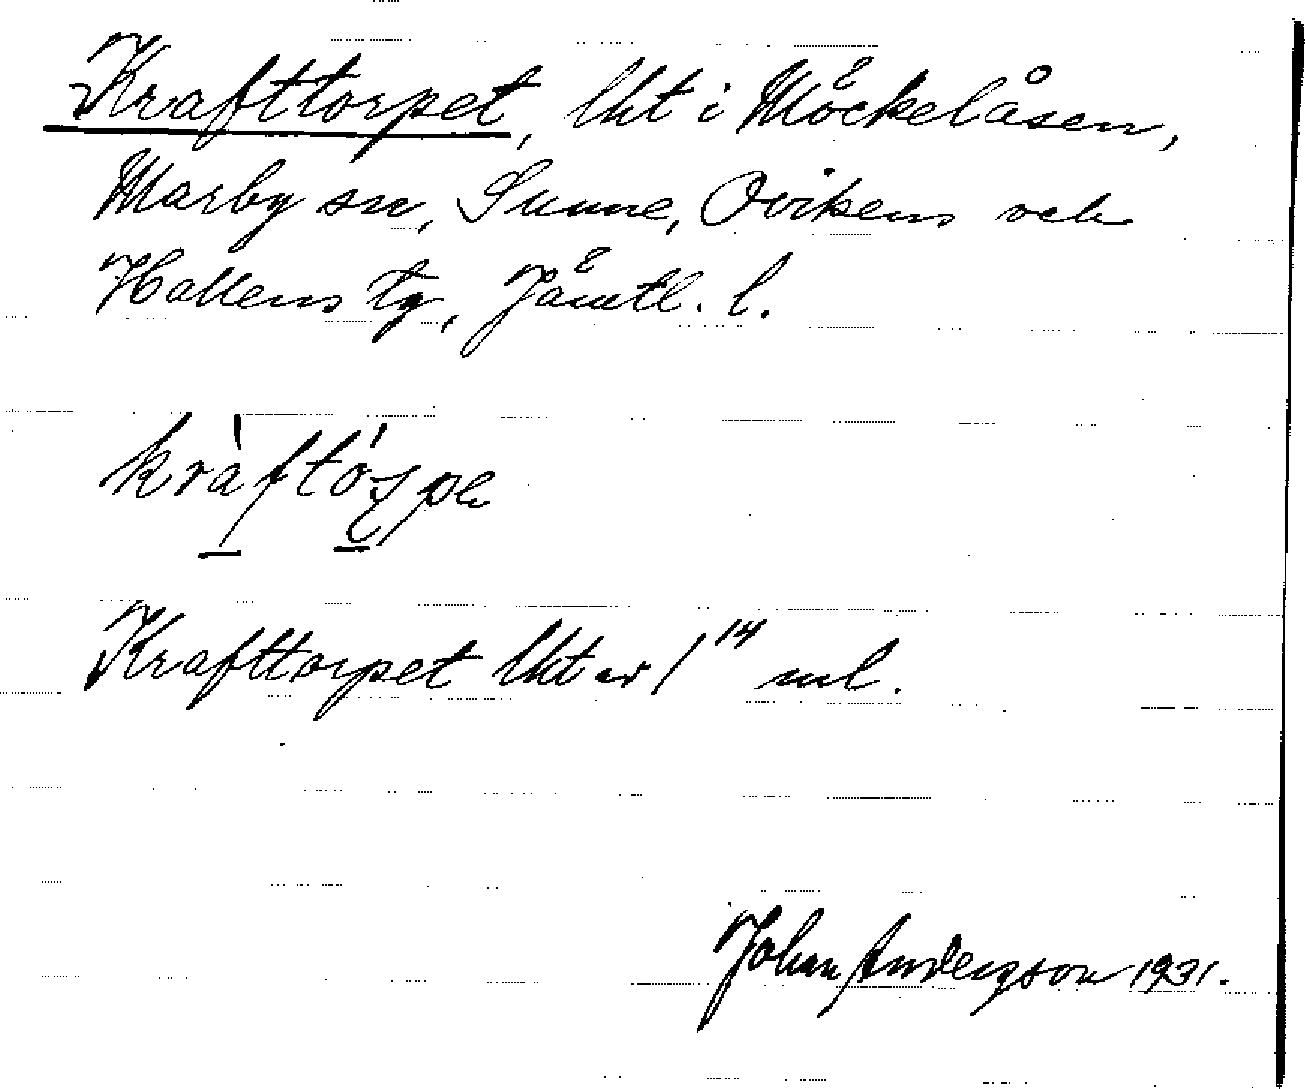 Krafttorpet, lht i Möckelåsen,
Marby sn, Sunne, Ovikens och
Hallens tg, Jämtl. l.
Krafttorpet lht 1/14 ml.
Johan Andersson 1931.